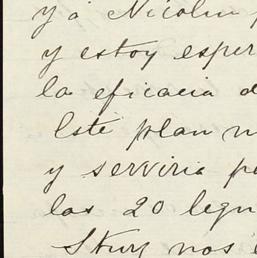 y á Nicolu
y estoy esper
la eficacia d
Este plan n
y serviria pe
las 20 legu
nos